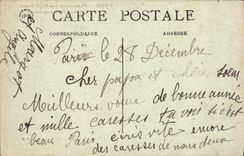 CARTE POSTALE
CORRESPONDANCE ADRESSE
Paris le 28 Décembre
cher papa et chère soeur
Meilleurs voeux de bonne année
et mille caresses tu vois si c'est
beau Paris écris vite encore
des caresses de nous deux